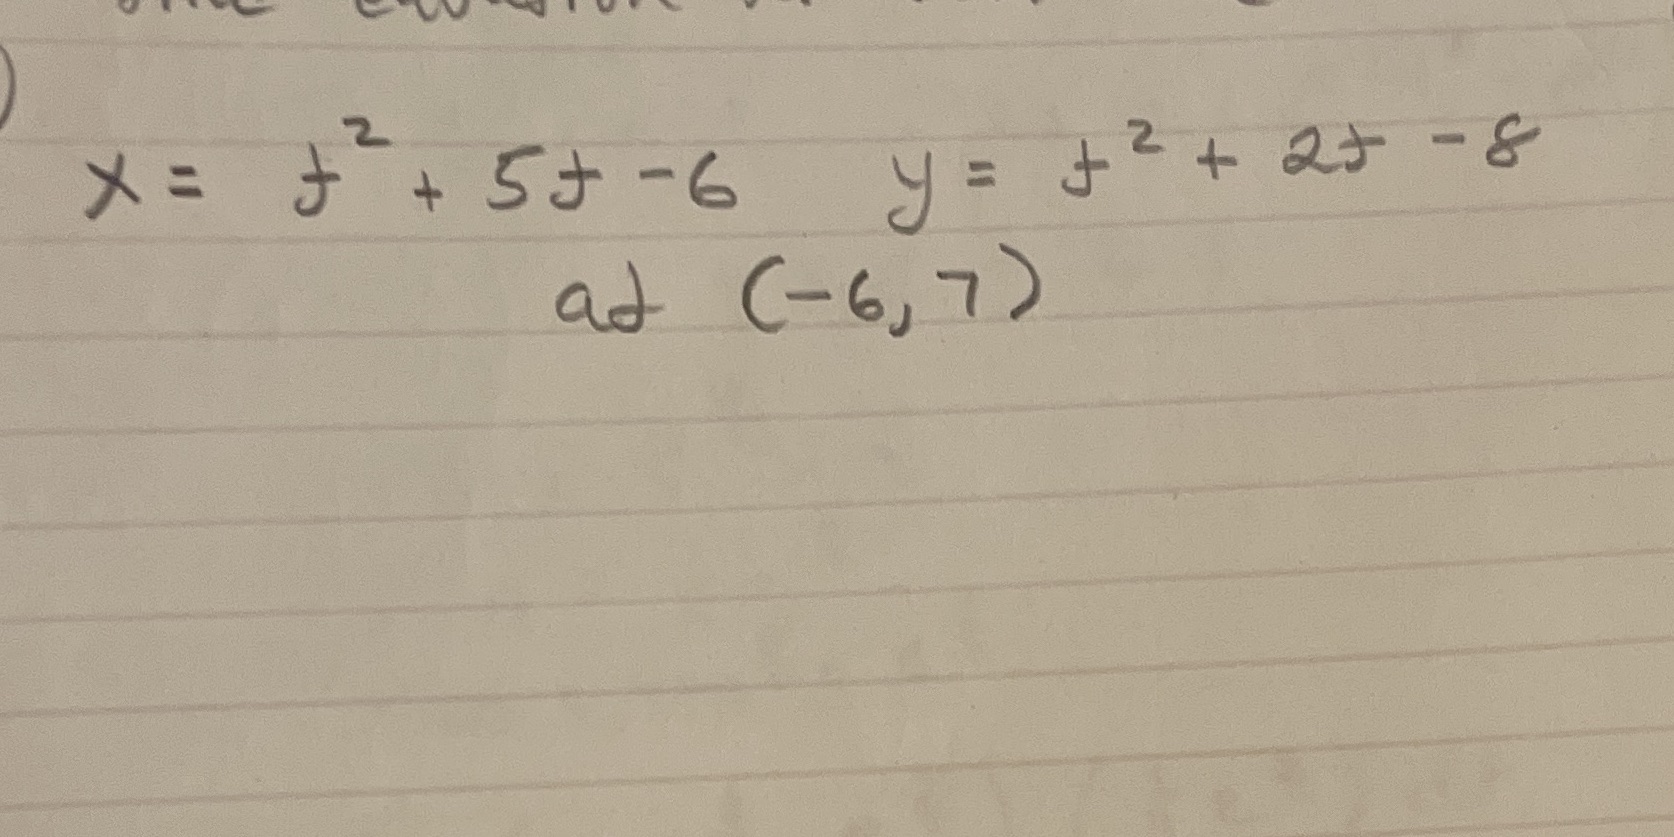 x = t² + 5t - 6 y = t² + 2t - 8
at (-6, 7)